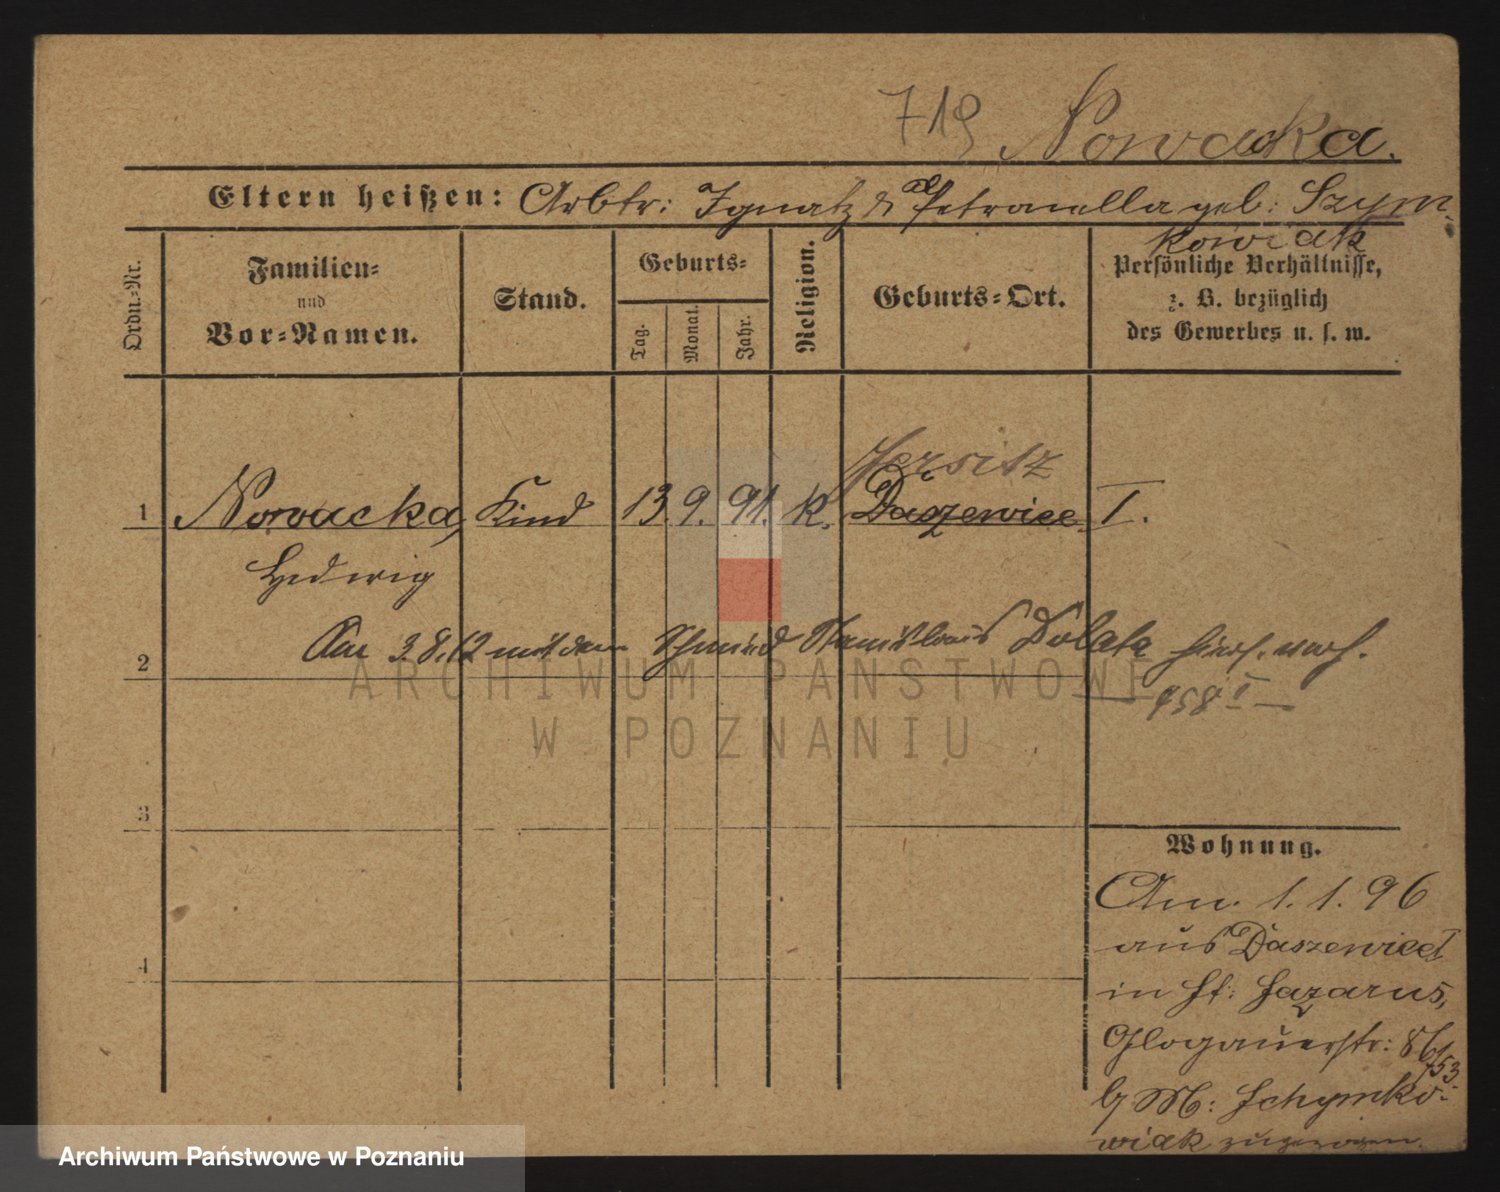 719 Nowacka.
Eltern heißen: Arbtr: Ignatz & Petronella geb: Szym-
kowiak
Ordn.-Nr.
Familien-
und
Vor-Namen.
Stand.
Geburts-
Tag.
Monat.
Jahr.
Religion.
Geburts-Ort.
Persönliche Verhältnisse,
z. B. bezüglich
des Gewerbes u. s. w.
Jersitz
1 Nowacka, Kind 13. 9. 91. k. Daszewice I.
Hedwig
2 Am 3.8.12 mit dem Schmied Stanislaus Dolata hier verh.
958 I
3
4
Wohnung.
Am. 1. 1. 96
aus Daszewice
in St: Lazarus,
Glogauerstr: 86
b/ M: Schymko-
wiak zugezogen.
ARCHIWUM PAŃSTWOWE
W POZNANIU
Archiwum Państwowe w Poznaniu